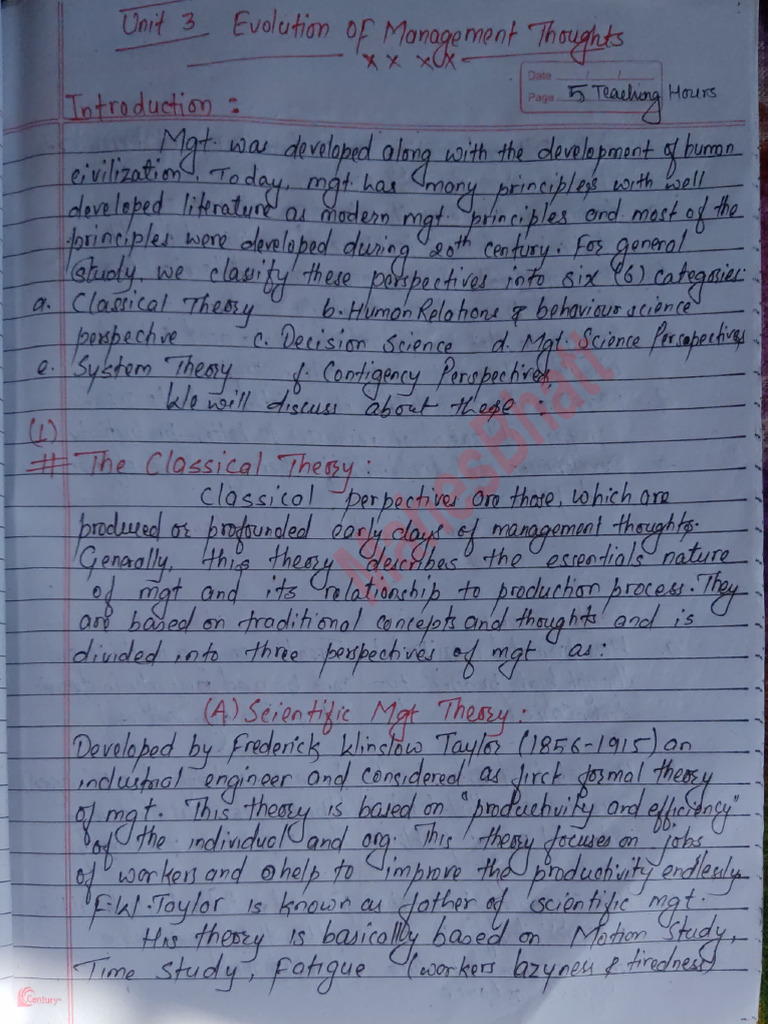 Unit 3 Evolution of Management Thoughts
x x x x
Date / /
Page 5 Teaching Hours
Introduction :
Mgt. was developed along with the development of human
civilization. Today, mgt. has many principles with well
developed literature as modern mgt. principles and most of the
principles were developed during 20th century. For general
study, we classify these perspectives into six (6) categories:
a. Classical Theory b. Human Relations & behaviour science
perspective c. Decision Science d. Mgt. Science Persepectives
e. System Theory f. Contigency Perspectives
We will discuss about these :
(1)
# The Classical Theory :
Classical perpectives are those, which are
produred or profounded early days of management thoughts.
Genrally, this theory describes the essentials nature
of mgt and its relationship to production process. They
are based on traditional concepts and thoughts and is
divided into three perspectives of mgt as:
(A) Scientific Mgt Theory :
Developed by Frederick Winslow Taylor (1856-1915) an
industrial engineer and considered as first formal theory
of mgt. This theory is based on "productivity and efficiency"
of the individual and org. This theory focuses on jobs
of workers and help to improve the productivity endlessly.
F.W. Taylor is known as father of scientific mgt.
His theory is basically based on Motion Study,
Time Study, Fatigue (workers lazyness & tiredness)
MahesBhatt
Century